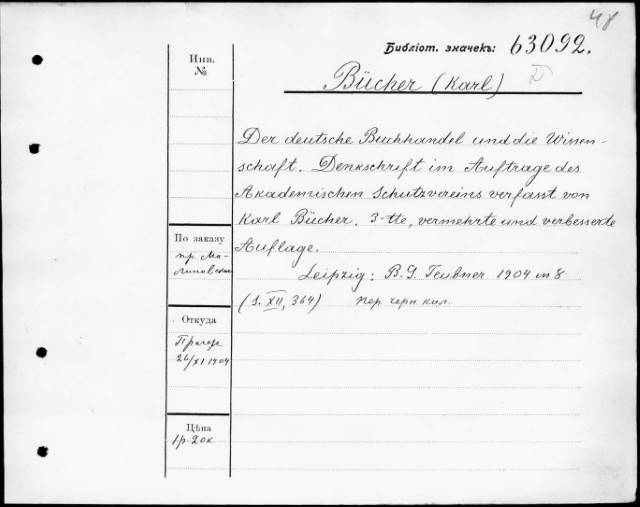 48
Библіот. значекъ: 63092.
Bücher (Karl)
Инв.
№
Der deutsche Buchhandel und die Wissen-
schaft. Denkschrift im Auftrage des
Akademischen Schutzvereins verfasst von
Karl Bücher. 3-tte, vermehrte und verbesserte
Auflage.
Leipzig: B. G. Teubner 1904 in 8
(S. XII, 364) пер. черн. кол.
По заказу
пр. Ма-
линовскаго
Откуда
26/XI 1904
Цѣна
1р. 20к